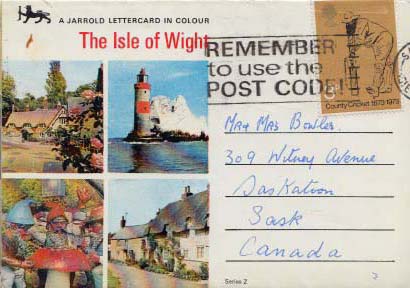 A JARROLD LETTERCARD IN COLOUR
The Isle of Wight
REMEMBER
to use the
POST CODE!
County Cricket 1873·1973
Mr & Mrs Bowler.
309 Witney Avenue
Saskatoon
Sask
Canada
Series 2